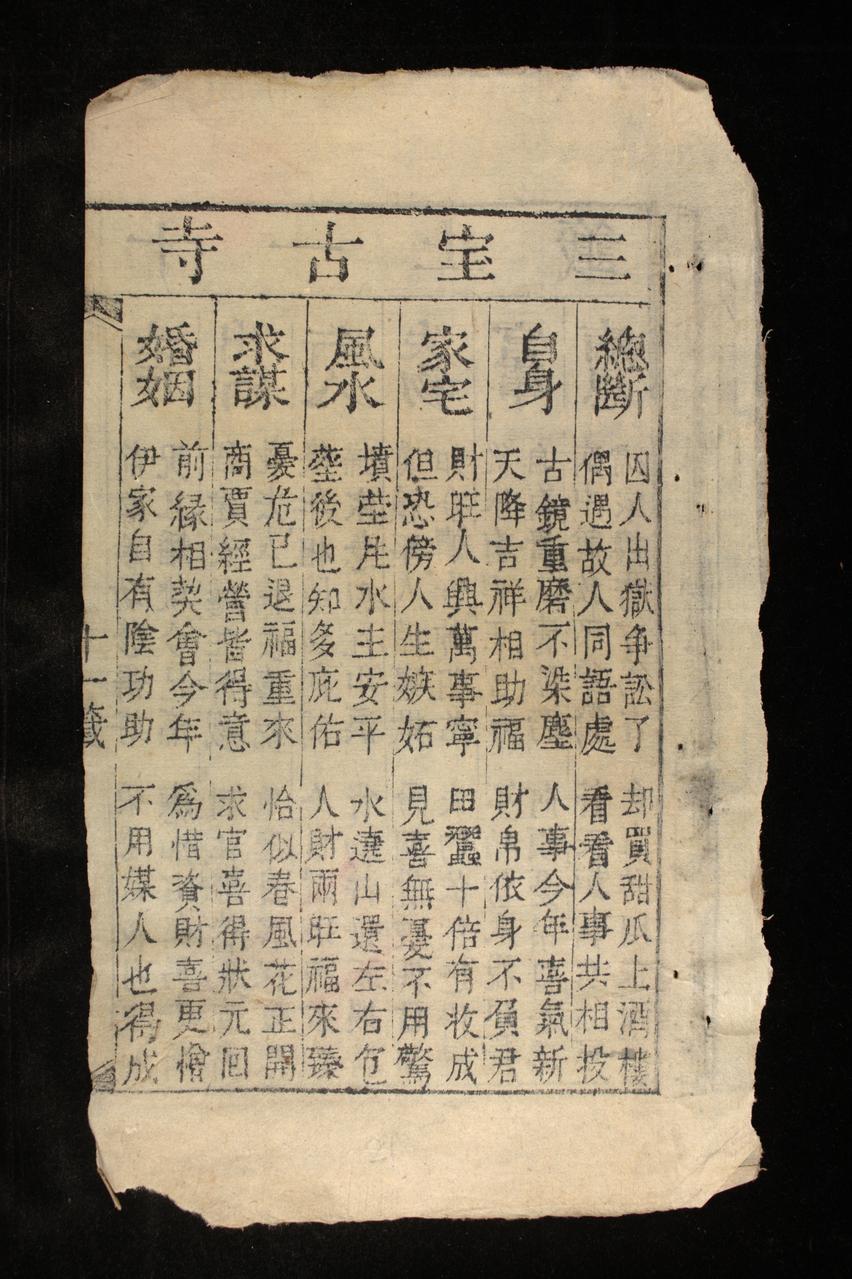 三宝古寺
總斷
囚人出獄争訟了 却買甜瓜上酒樓
偶遇故人同語處 看看人事共相投
自身
古鏡重磨不染塵 人事今年喜氣新
天降吉祥相助福 財帛依身不負君
家宅
財旺人興萬事寧 田蠶十倍有收成
但恐傍人生嫉妬 見喜無憂不用驚
風水
墳塋凴水主安平 水遶山還左右包
塟後也知多庇佑 人財兩旺福來臻
求謀
憂危已退福重來 恰似春風花正開
商賈經營皆得意 求官喜得狀元回
婚姻
前緣相契會今年 為惜資財喜更憎
伊家自有陰功助 不用媒人也得成
十一籤